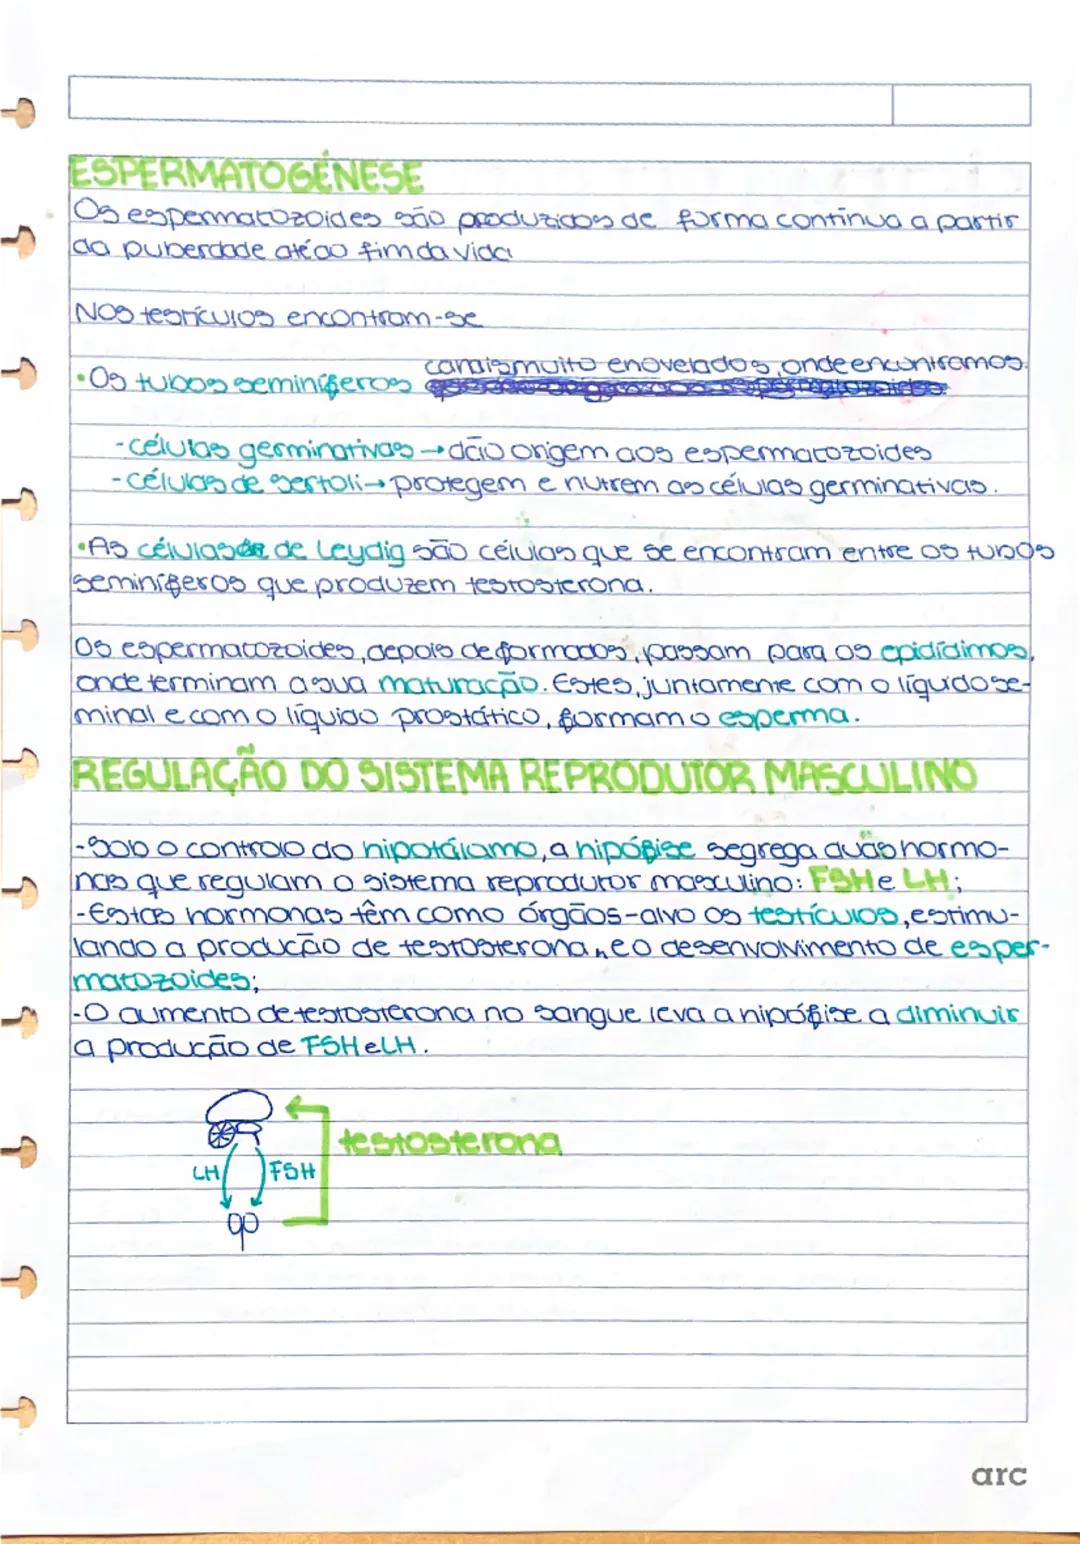 ESPERMATOGÉNESE
Os espermatozoides são produzidos de forma contínua a partir
da puberdade até ao fim da vida
Nos testículos encontram-se
canais muito enovelados, onde encontramos.
•Os tubos seminíferos
-células germinativas → dão origem aos espermatozoides
-células de sertoli → protegem e nutrem as células germinativas.
•As células de Leydig são células que se encontram entre os tubos
seminíferos que produzem testosterona.
Os espermatozoides, depois de formados, passam para os epidídimos,
onde terminam a sua maturação. Estes, juntamente com o líquido se-
minal e com o líquido prostático, formam o esperma.
REGULAÇÃO DO SISTEMA REPRODUTOR MASCULINO
-Sob o controlo do hipotálamo, a hipófise segrega duas hormo-
nas que regulam o sistema reprodutor masculino: FSH e LH;
-Estas hormonas têm como órgãos-alvo os testículos, estimu-
lando a produção de testosterona, e o desenvolvimento de esper-
matozoides;
-O aumento de testosterona no sangue leva a hipófise a diminuir
a produção de FSH e LH.
testosterona
LH FSH
arc